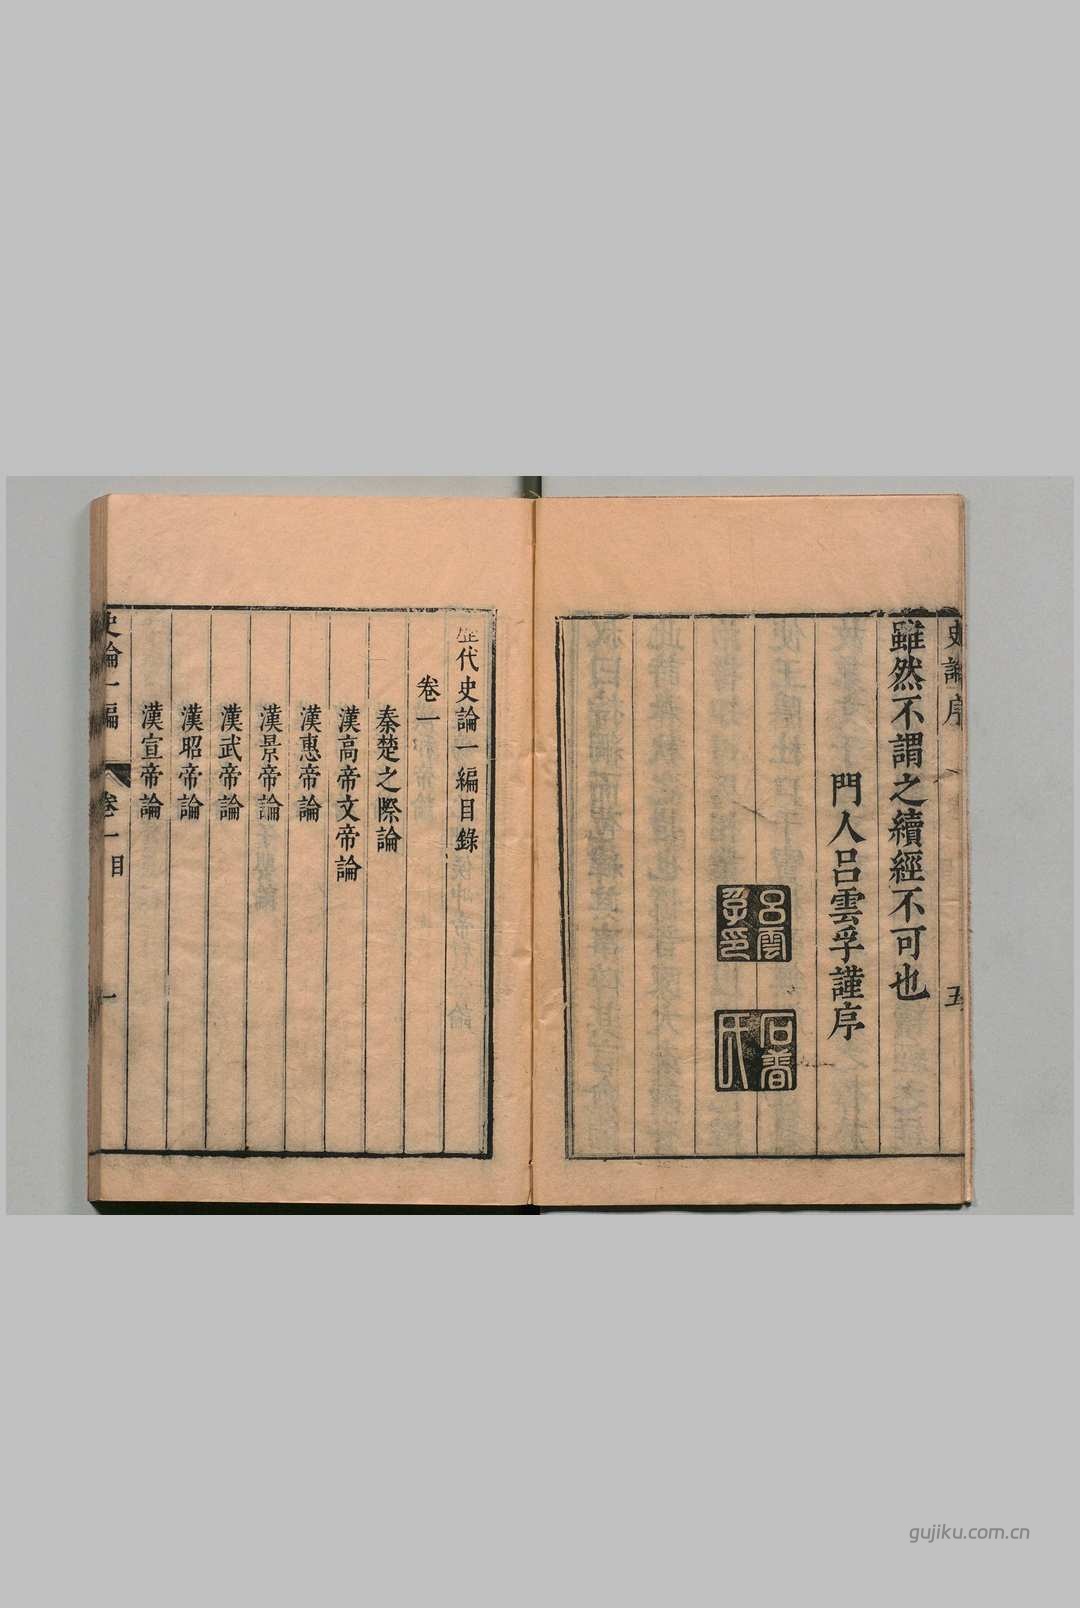 史論序
五
雖然不謂之續經不可也
門人呂雲孚謹序
呂雲孚印
石香氏
歷代史論一編目錄
卷一
秦楚之際論
漢高帝文帝論
漢惠帝論
漢景帝論
漢武帝論
漢昭帝論
漢宣帝論
史論一編
卷一目
一
gujiku.com.cn